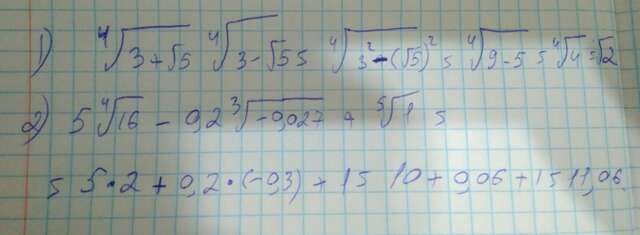 1) ⁴√(3+√5) ⁴√(3-√5) = ⁴√(3²-(√5)²) = ⁴√(9-5) = ⁴√4 = √2
2) 5 ⁴√16 - 0,2 ³√(-0,027) + ⁵√1 =
= 5·2 + 0,2·(-0,3) + 1 = 10 + 0,06 + 1 = 11,06.